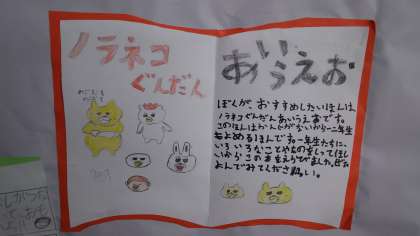 ノラネコ
ぐんだん
あいうえお
ぼくが、おすすめしたいほんは、
ノラネコぐんだんあいうえおです。
このほんはかんじがないから一二年生
もよめるほんです。一年生たちに、
いろいろなことやものをしってほし
いからこの本をえらびました。ぜひ
よんでみてくださいね。